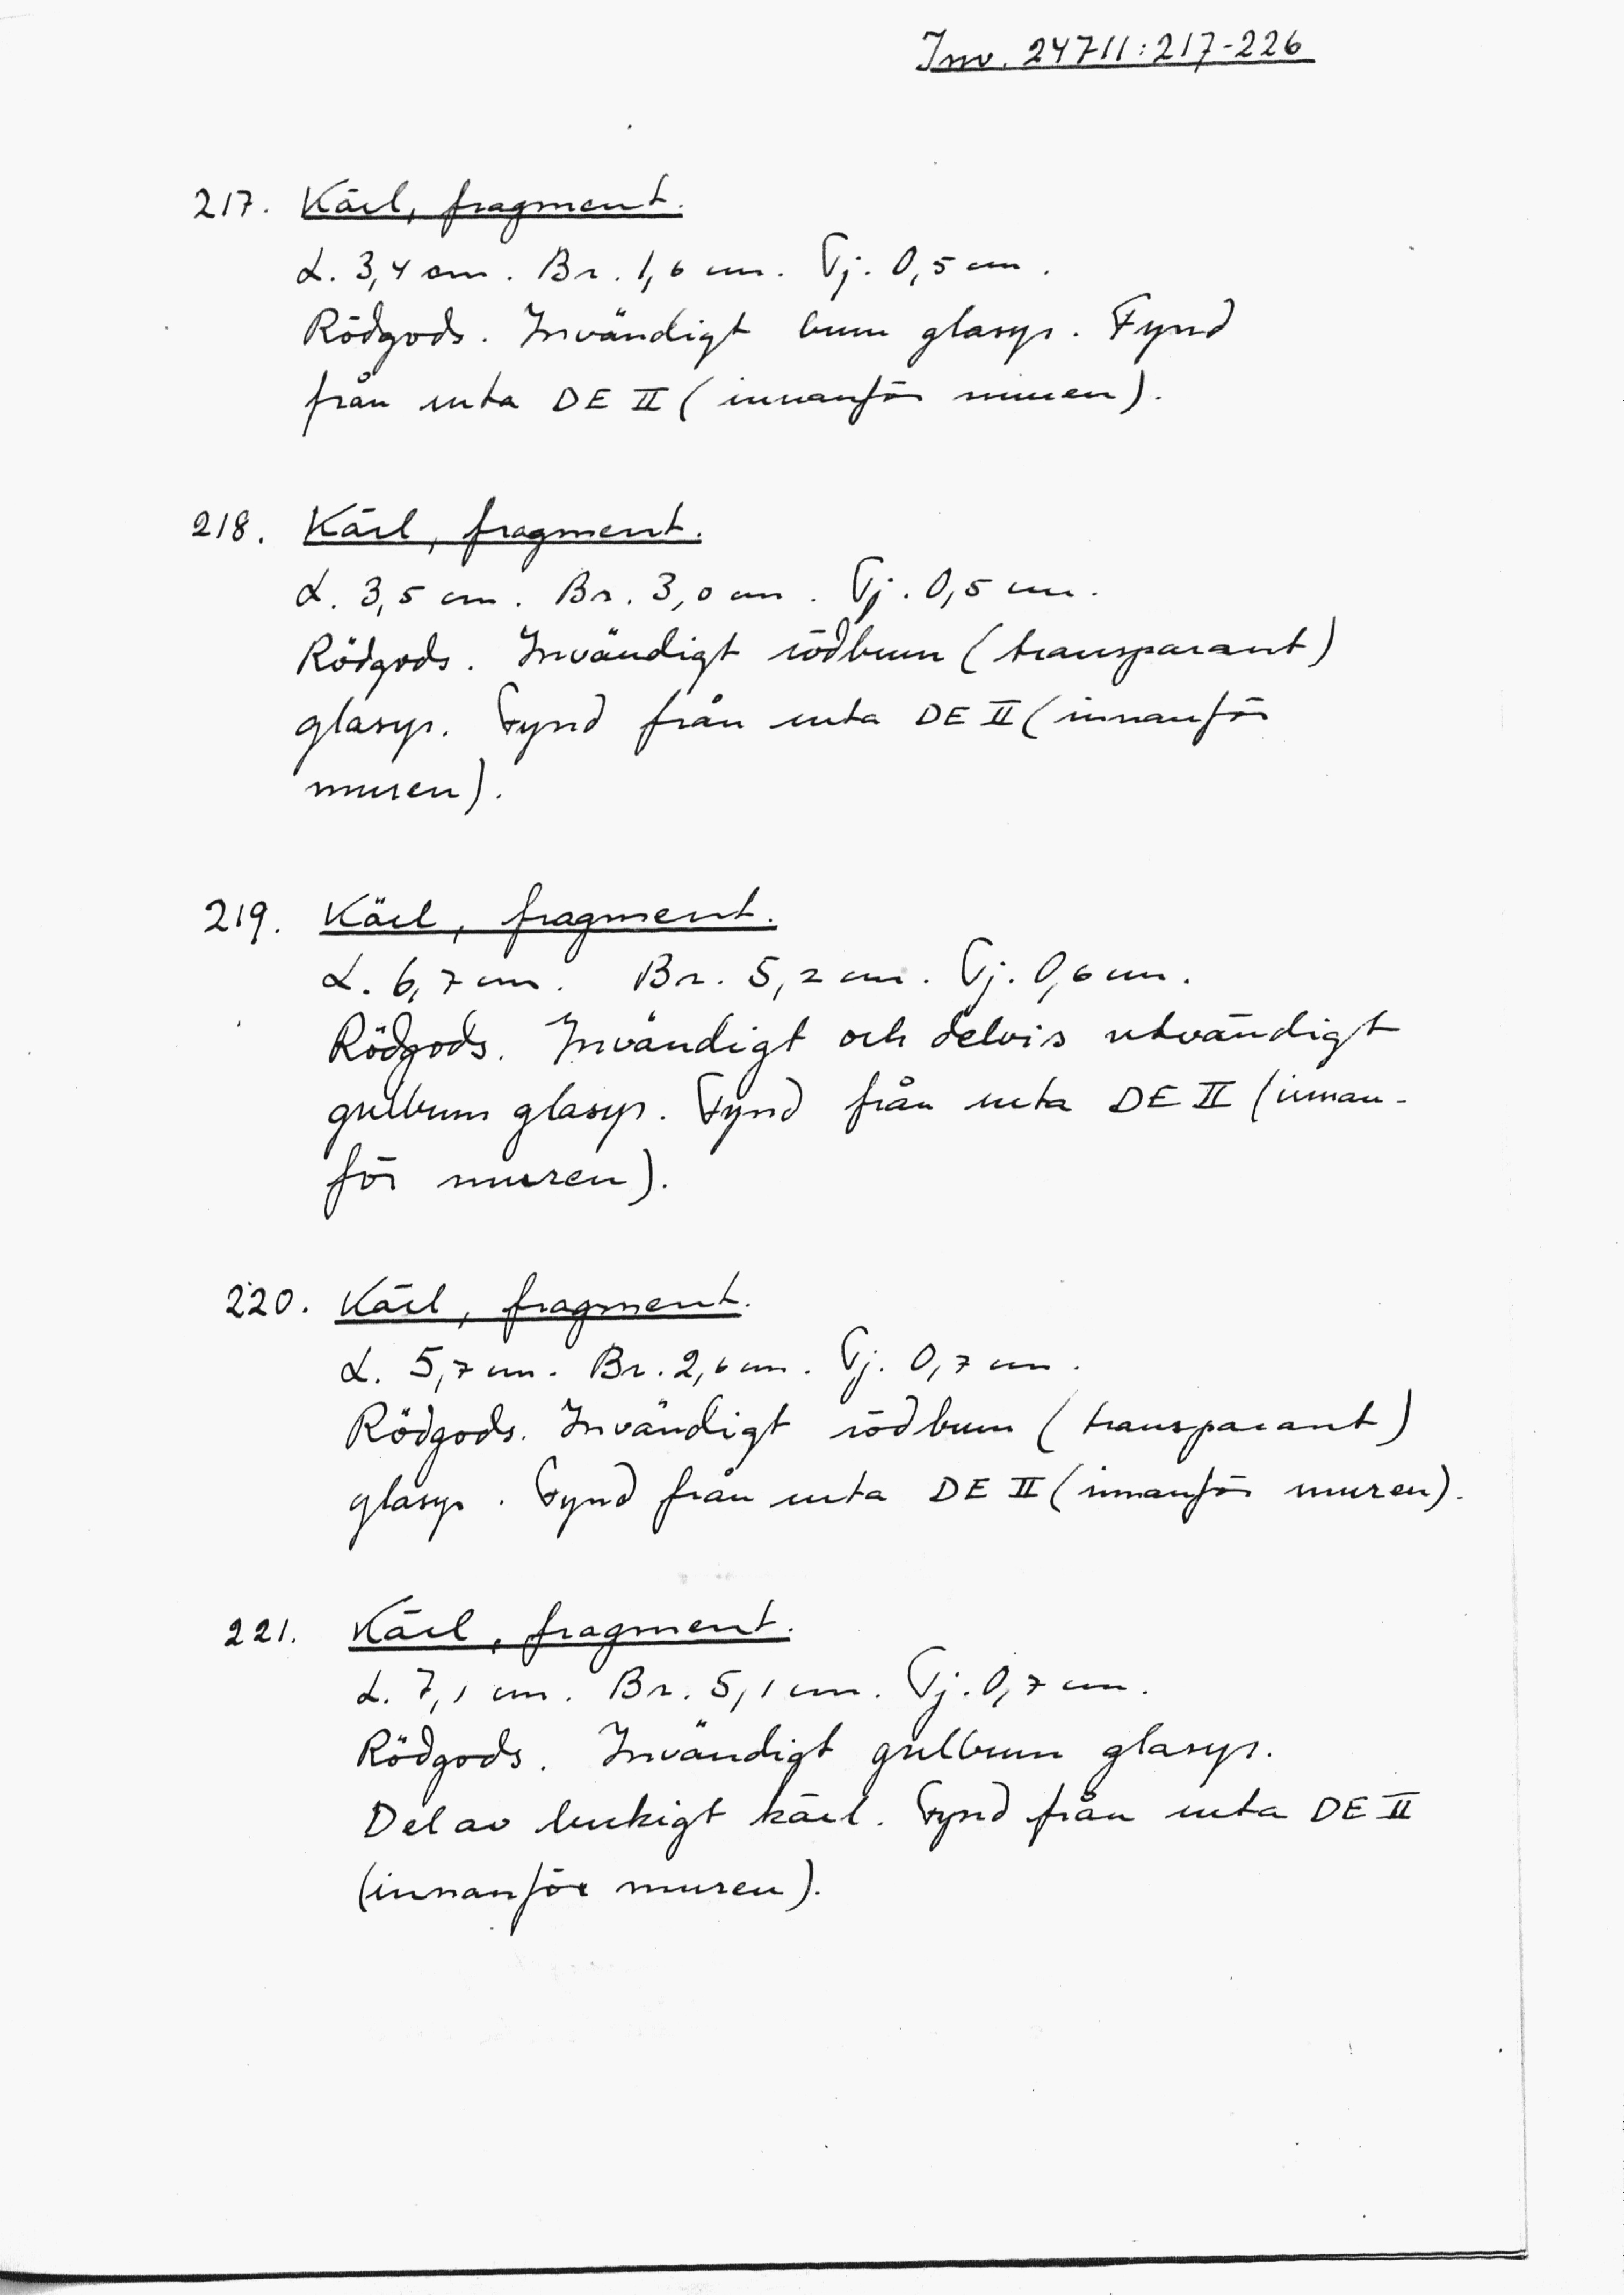 Inv. 24711:217-226
217. Kärl, fragment.
L. 3,4 cm. Br. 1,6 cm. Tj. 0,5 cm.
Rödgods. Invändigt brun glasyr. Fynd
från ruta DE II (innanför muren).
218. Kärl, fragment.
L. 3,5 cm. Br. 3,0 cm. Tj. 0,5 cm.
Rödgods. Invändigt rödbrun (transparant)
glasyr. Fynd från ruta DE II (innanför
muren).
219. Kärl, fragment.
L. 6,7 cm. Br. 5,2 cm. Tj. 0,6 cm.
Rödgods. Invändigt och delvis utvändigt
gulbrun glasyr. Fynd från ruta DE II (innan-
för muren).
220. Kärl, fragment.
L. 5,7 cm. Br. 2,6 cm. Tj. 0,7 cm.
Rödgods. Invändigt rödbrun (transparant)
glasyr. Fynd från ruta DE II (innanför muren).
221. Kärl, fragment.
L. 7,1 cm. Br. 5,1 cm. Tj. 0,7 cm.
Rödgods. Invändigt gulbrun glasyr.
Del av bukigt kärl. Fynd från ruta DE II
(innanför muren).